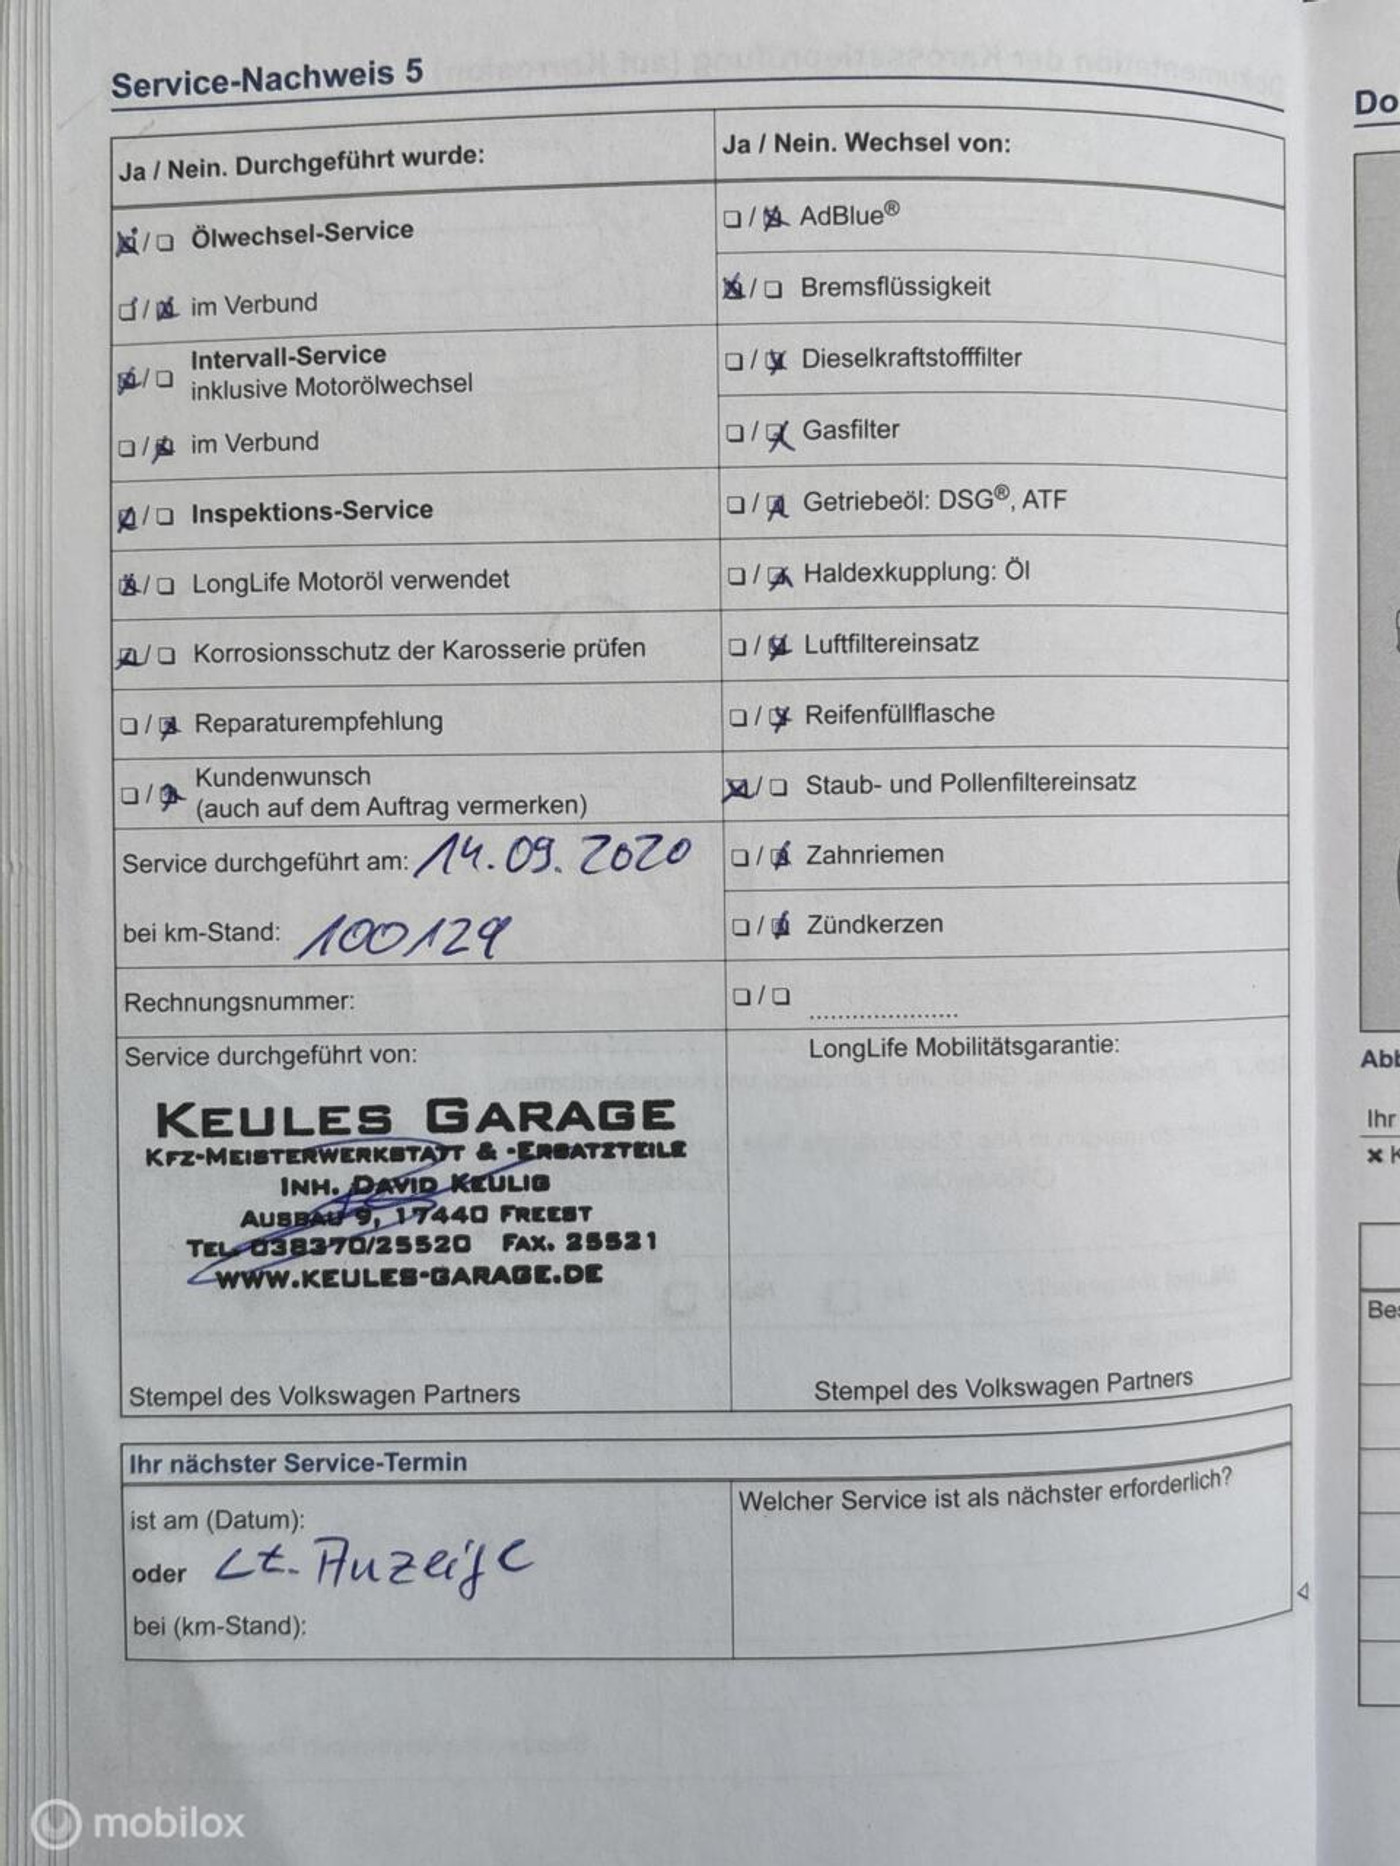 Service-Nachweis 5
Ja / Nein. Durchgeführt wurde:
Ölwechsel-Service
im Verbund
Intervall-Service
inklusive Motorölwechsel
im Verbund
Inspektions-Service
LongLife Motoröl verwendet
Korrosionsschutz der Karosserie prüfen
Reparaturempfehlung
Kundenwunsch
(auch auf dem Auftrag vermerken)
Service durchgeführt am: 14.09.2020
bei km-Stand: 100129
Rechnungsnummer:
Service durchgeführt von:
KEULES GARAGE
KFZ-MEISTERWERKSTATT & -ERSATZTEILE
INH. DAVID KEULIG
AUSBAU 9, 17440 FREEST
TEL. 038370/25520 FAX. 25521
WWW.KEULES-GARAGE.DE
Stempel des Volkswagen Partners
Ja / Nein. Wechsel von:
AdBlue®
Bremsflüssigkeit
Dieselkraftstofffilter
Gasfilter
Getriebeöl: DSG®, ATF
Haldexkupplung: Öl
Luftfiltereinsatz
Reifenfüllflasche
Staub- und Pollenfiltereinsatz
Zahnriemen
Zündkerzen
LongLife Mobilitätsgarantie:
Stempel des Volkswagen Partners
Ihr nächster Service-Termin
ist am (Datum):
oder Lt. Anzeige
bei (km-Stand):
Welcher Service ist als nächster erforderlich?
Do
Abb
Ihr
Bes
mobilox